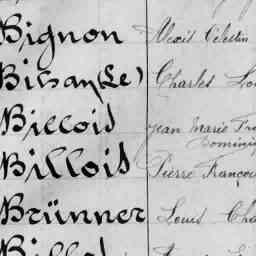 Bignon Alexis Célestin
Bihan (Le) Charles Lou
Biccois Jean Marie Fra
Dominiq
Billois Pierre Françoi
Brünner Louis Cha